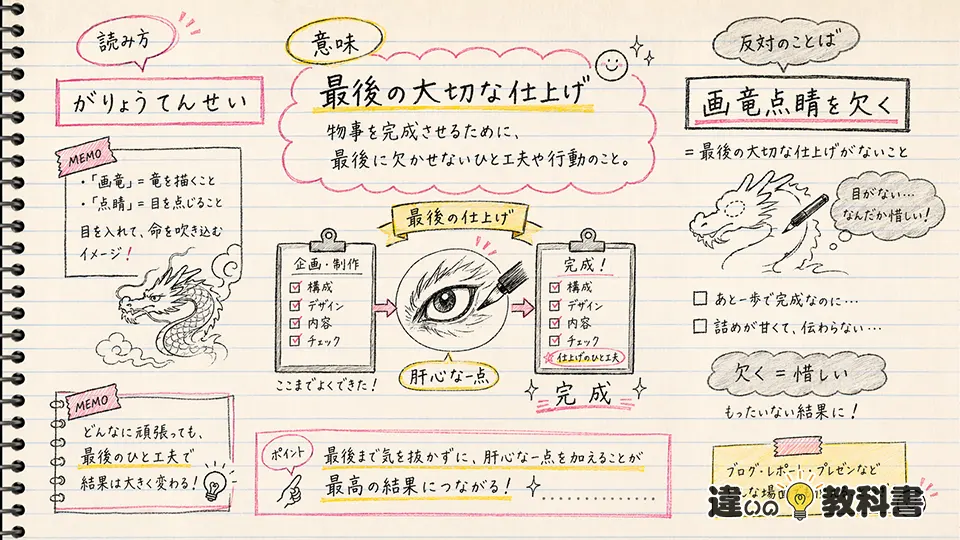 読み方
がりょうてんせい
MEMO
・「画竜」= 竜を描くこと
・「点睛」= 目を点じること
目を入れて、命を吹き込む
イメージ!
MEMO
どんなに頑張っても、
最後のひと工夫で
結果は大きく変わる!
意味
最後の大切な仕上げ
物事を完成させるために、
最後に欠かせないひと工夫や行動のこと。
最後の仕上げ
企画・制作
構成
デザイン
内容
チェック
ここまでよくできた!
肝心な一点
完成!
構成
デザイン
内容
チェック
仕上げのひと工夫
完成
ポイント
最後まで気を抜かずに、肝心な一点を加えることが
最高の結果につながる!
反対のことば
画竜点睛を欠く
= 最後の大切な仕上げがないこと
目がない…
なんだか惜しい!
あと一歩で完成なのに…
詰めが甘くて、伝わらない…
欠く = 惜しい
もったいない結果に!
ブログ・レポート・プレゼンなど
違いの教科書